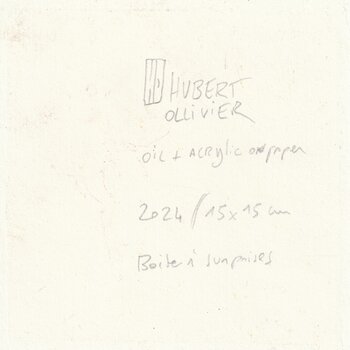 HUBERT
OLLIVIER
OIL + ACRYLIC ON PAPER
2024 / 15 x 15 cm
Boîte à surprises